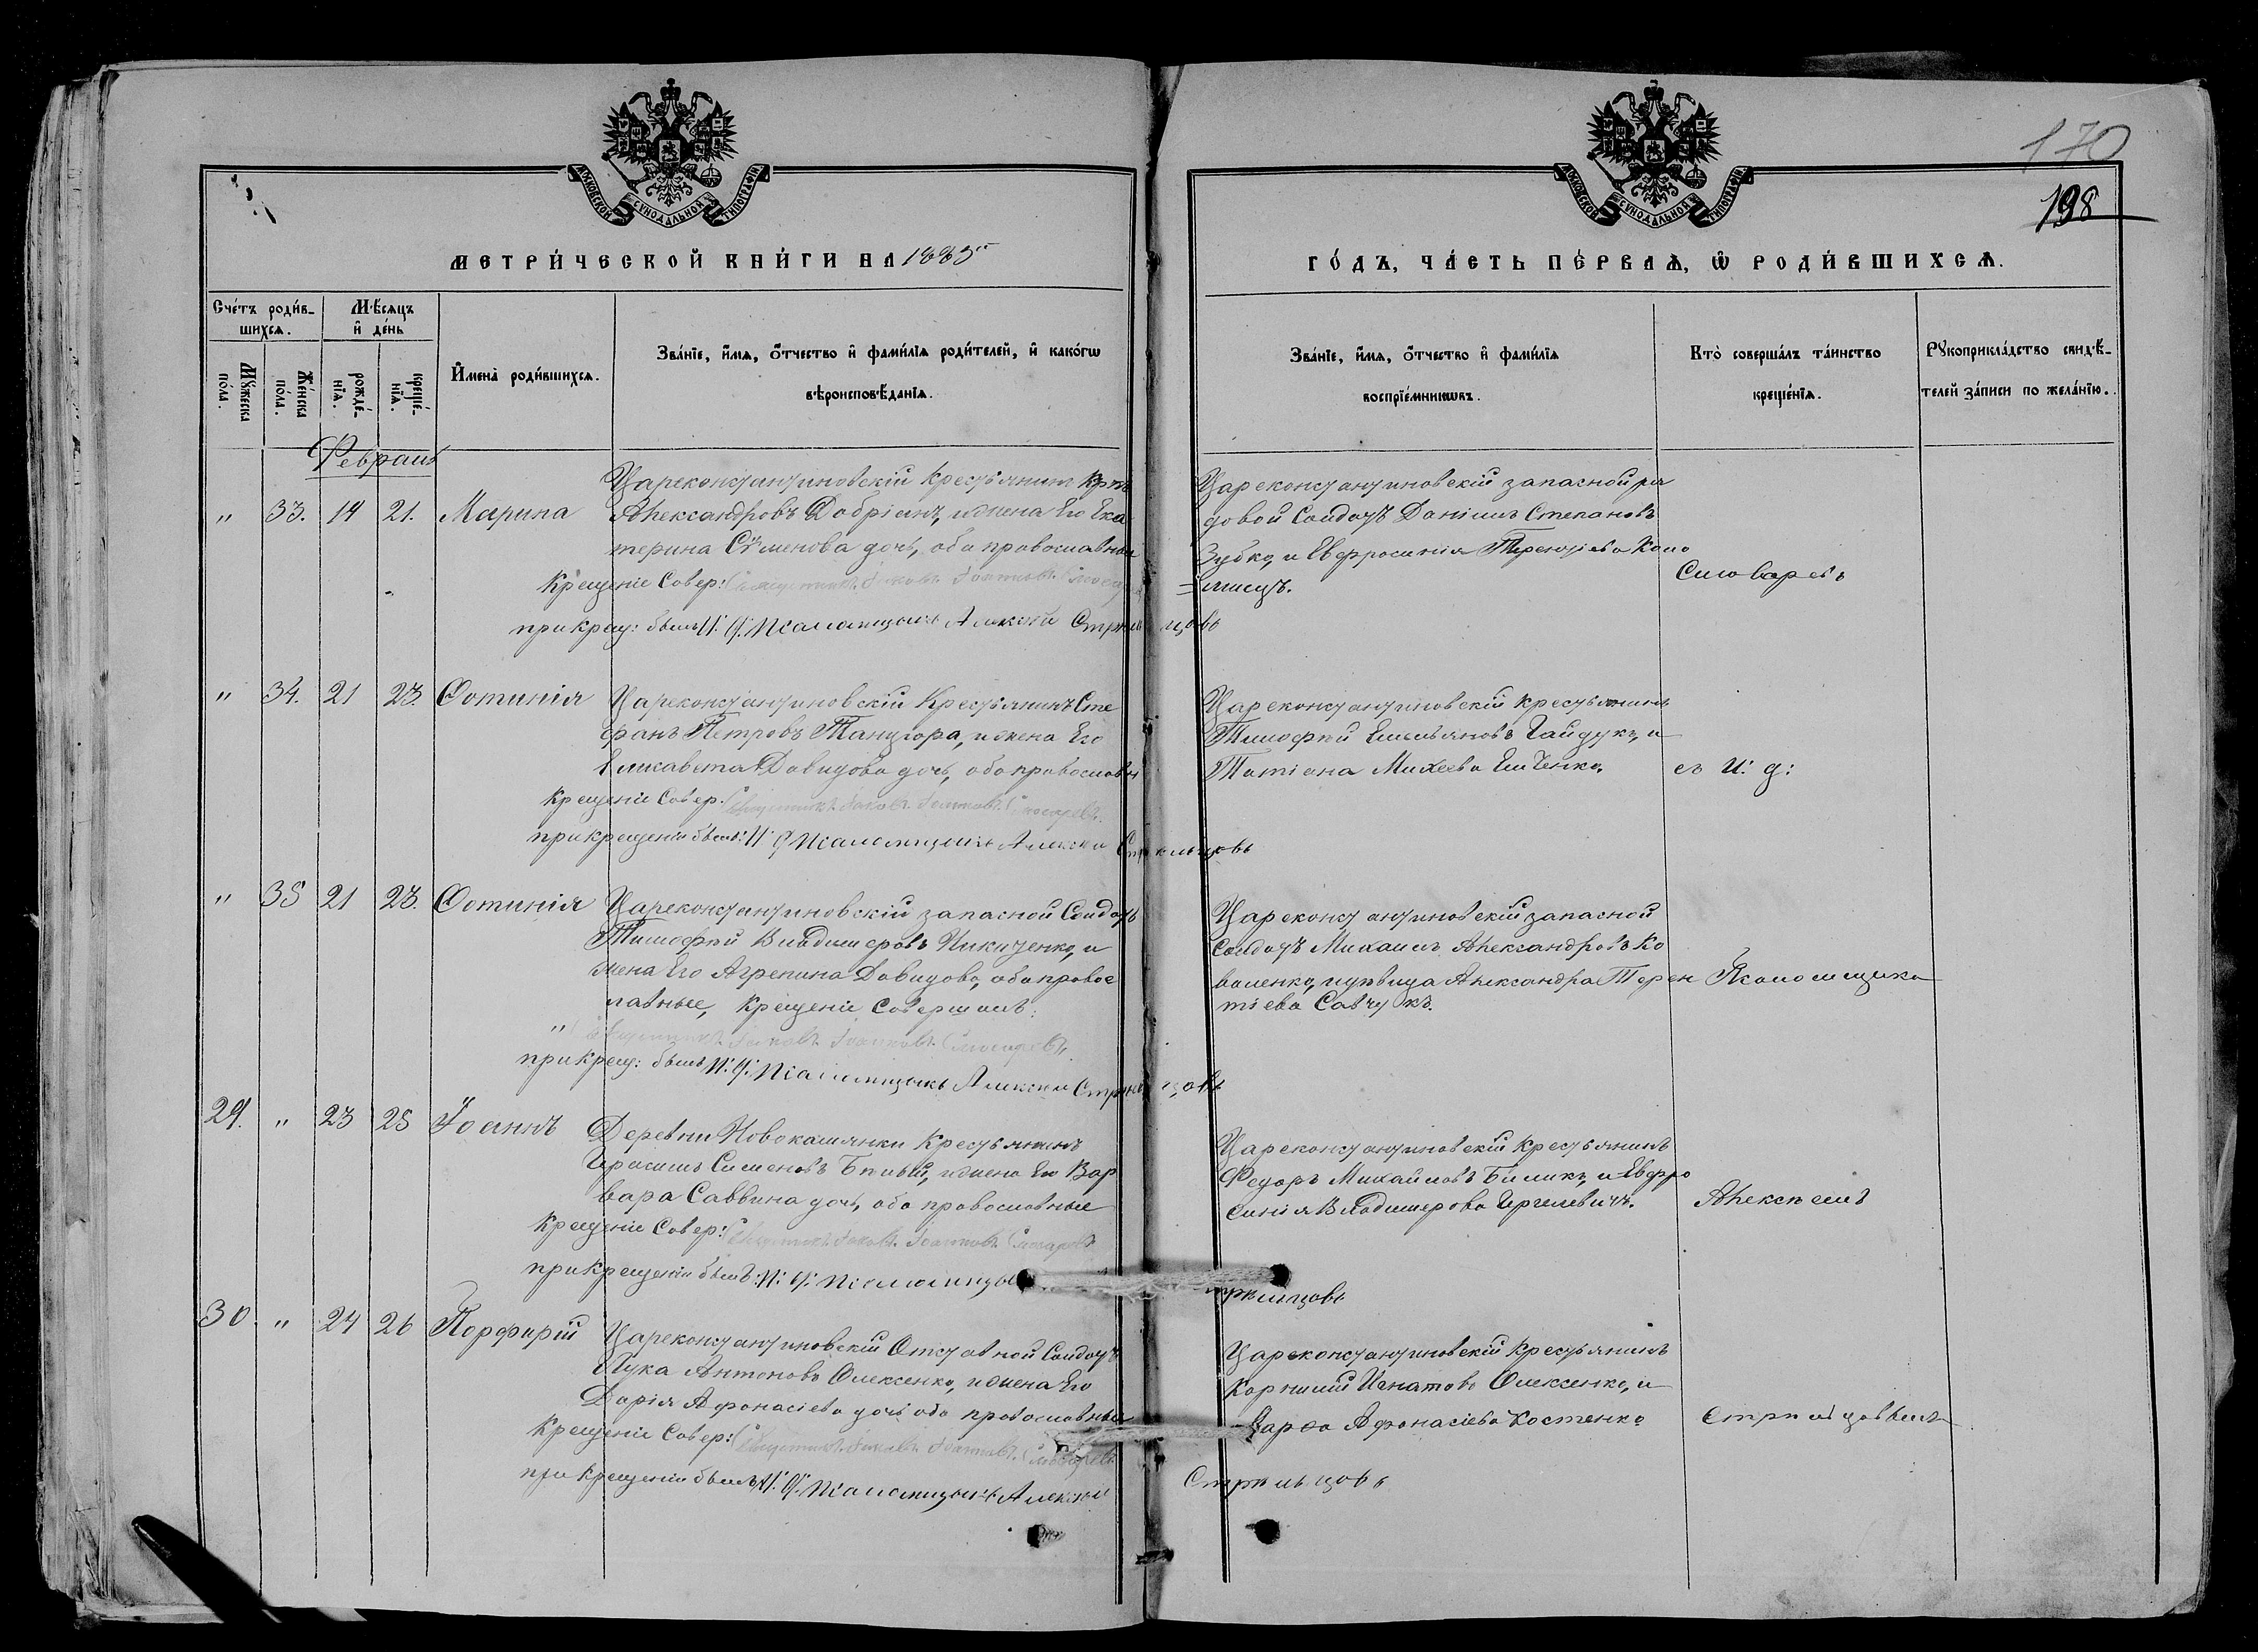 170
198
МОСКОВСКОЙ СѴНОДАЛЬНОЙ ТИПОГРАФІИ
МОСКОВСКОЙ СѴНОДАЛЬНОЙ ТИПОГРАФІИ
МЕТРИ́ЧЕСКОЙ КНИ́ГИ НА 1885
ГО́ДЪ, ЧА́СТЬ ПЕ́РВАѦ, Ѿ РОДИ́ВШИХСѦ.
Сче́тъ роди́в-
шихсѧ.
Мꙋжеска по́ла.
Же́нска по́ла.
Мѣ́сѧцъ
и҆ де́нь
рожде́-нїѧ.
креще́-нїѧ.
И҆мена̀ роди́вшихсѧ.
Зва́нїе, и҆́мѧ, ѻ҆́тчество и҆ фами́лїѧ роди́телей, и҆ како́гѡ
вѣроисповѣ́данїѧ.
Зва́нїе, и҆́мѧ, ѻ҆́тчество и҆ фами́лїѧ
воспрїе́мникѡвъ.
Кто̀ соверша́лъ та́инство
креще́нїѧ.
Рꙋкоприкла́дство свидѣ́-
телей за́писи по жела́нїю.
Февраль
" 33. 14 21. Марина
Цареконстантиновскій Крестьянинъ
Александровъ Добріанъ, и жена Его Ека
терина Сѵменова дочь, оба православные
Крещеніе Совер: Священникъ Іаковъ Іоанновъ Слюсаревъ
при крещ: былъ И: д: Псаломщика Алексѣй Стрѣльцовъ
Цареконстантиновскій запасной ря
довой Солдатъ Даніилъ Степановъ
Зубко, и Евфросинія Терентіева Коло
=миецъ.
Слюсаревъ
" 34. 21 23. Фотинія
Цареконстантиновскій Крестьянинъ Сте
фанъ Петровъ Танцюра, и жена Его
Елисавета Давидова дочь, оба православн
Крещеніе Совер: Священникъ Іаковъ Іоанновъ Слюсаревъ.
при крещеніи былъ: И д Псаломщика Алексѣй Стрѣльцовъ
Цареконстантиновскій Крестьянинъ
Тимофѣй Емельяновъ Гайдукъ, и
Татіана Михеева Ельченко.
съ И: д:
" 35 21 23. Фотинія
Цареконстантиновскій запасной Солдатъ
Тимофѣй Владимеровъ Никитенко, и
жена Его Агрепина Давидова, оба правос
лавные, Крещеніе Совершалъ:
" Священникъ Іаковъ Іоанновъ Слюсаревъ.
при крещ: былъ И: д: Псаломщика Алексѣй Стрѣльцовъ
Цареконстантиновскій запасной
Солдатъ Михаилъ Александровъ Ко
валенко, и дѣвица Александра Терен
тіева Савчукъ.
Псаломщика
29. " 23 25 Іоаннъ
Деревни Новокамянки Крестьянинъ
Герасимъ Сименовъ Бѣлый, и жена Его Вар
вара Саввина дочь, оба православные
Крещеніе Совер: Священникъ Іаковъ Іоанновъ Слюсаревъ
при крещеніи былъ: И: д: Псаломщика
трѣльцовъ
Цареконстантиновскій Крестьянинъ
Федоръ Михайловъ Биликъ, и Евфро
синія Владимерова Гергелевичъ.
Алексѣемъ
30. " 24 26 Порфирій
Цареконстантиновскій Отставной Солдатъ
Лука Антоновъ Олексенко, и жена Его
Дарія Афонасіева дочь оба православные
Крещеніе Совер: Священникъ Іаковъ Іоанновъ Слюсаревъ
при крещеніи былъ И: д: Псаломщика Алексѣй
Стрѣльцовъ
Цареконстантиновскій Крестьянинъ
Корнилій Игнатовъ Олексенко, и
Марѳа Афонасіева Костенко
Стрѣльцовымъ